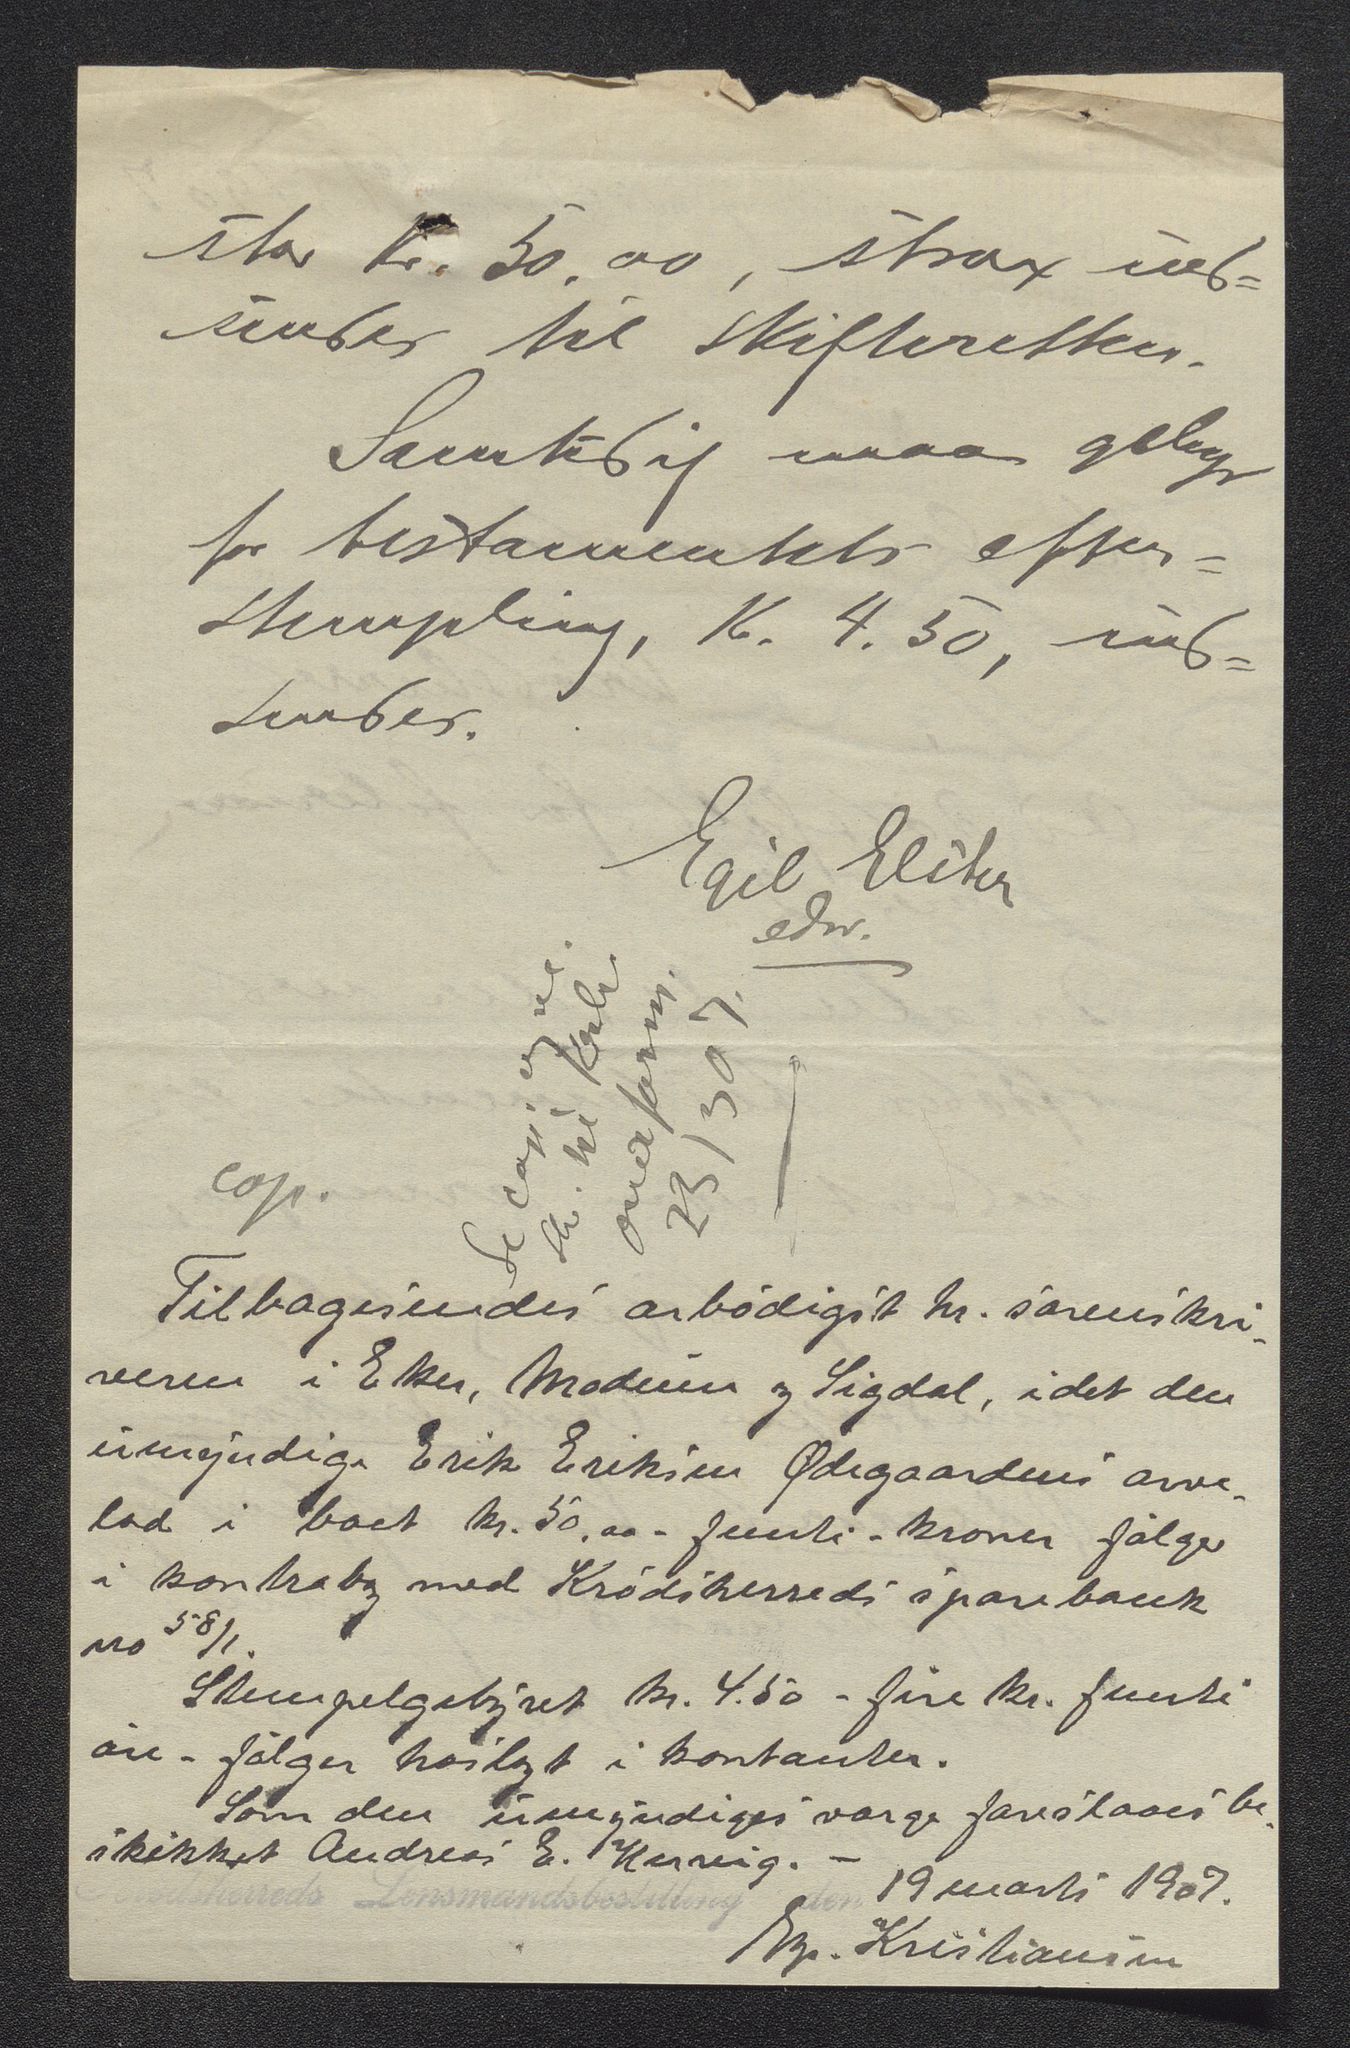 stor Kr. 50.00, strax ind=
sendes til Skifteretten.
Samtidig maa gebyr
for testamentets efter=
stempling, Kr. 4.50, ind=
sendes.
Egil Elster
edw.
23/3 07.
cop.
Tilbagesendes ærbødigst hr. sorenskri-
veren i Eker, Modum og Sigdal, idet den
umyndige Erik Eriksen Ødegaardens arve-
lod i boet kr. 50.00 - femti - kroner følger
i kontrabog med Krødsherreds sparebank
no 58/1.
Stempelgebyret kr. 4.50 - fire kr. femti
øre - følger hoslagt i kontanter.
Som den umyndiges værge foreslaaes be-
skikket Andreas E. -
Krødsherreds Lensmandsbestilling den 19 marts 1907.
Kristiansen